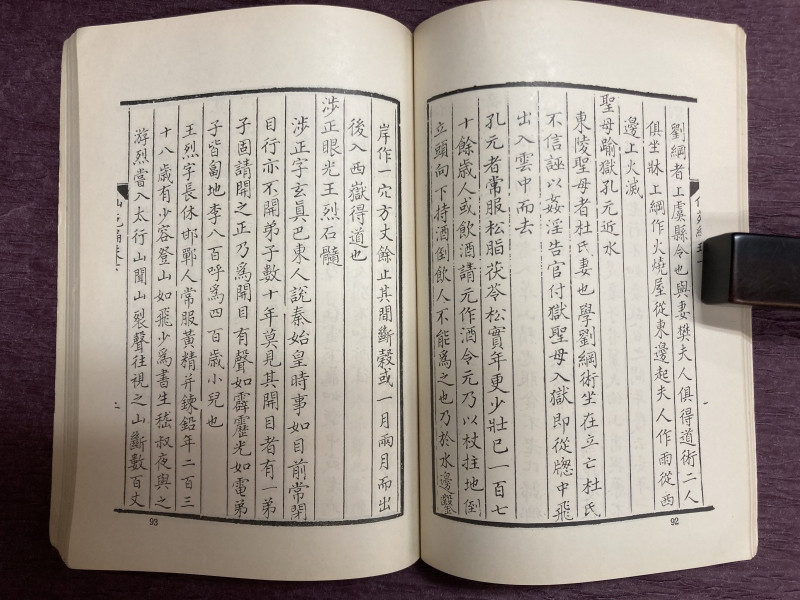 劉綱者上虞縣令也與妻樊夫人俱得道術二人
俱坐牀上綱作火燒屋從東邊起夫人作雨從西
邊上火滅
聖母踰獄孔元近水
東陵聖母者杜氏妻也學劉綱術坐在立亡杜氏
不信誣以姦淫告官付獄聖母入獄即從牕中飛
出入雲中而去
孔元者常服松脂茯苓松實年更少壯已一百七
十餘歲人或飲酒請元作酒令元乃以杖拄地倒
立頭向下持酒倒飲人不能爲之也乃於水邊鑿
92
岸作一穴方丈餘止其間斷穀或一月兩月而出
後入西嶽得道也
涉正眼光王烈石髓
涉正字玄眞巴東人說秦始皇時事如目前常閉
目行亦不開弟子數十年莫見其開目者有一弟
子固請開之正乃爲開目有聲如霹靂光如電弟
子皆匐地李八百呼爲四百歲小兒也
王烈字長休邯鄲人常服黃精并鍊鉛年二百三
十八歲有少容登山如飛少爲書生嵇叔夜與之
游烈嘗入太行山聞山裂聲往視之山斷數百丈
93